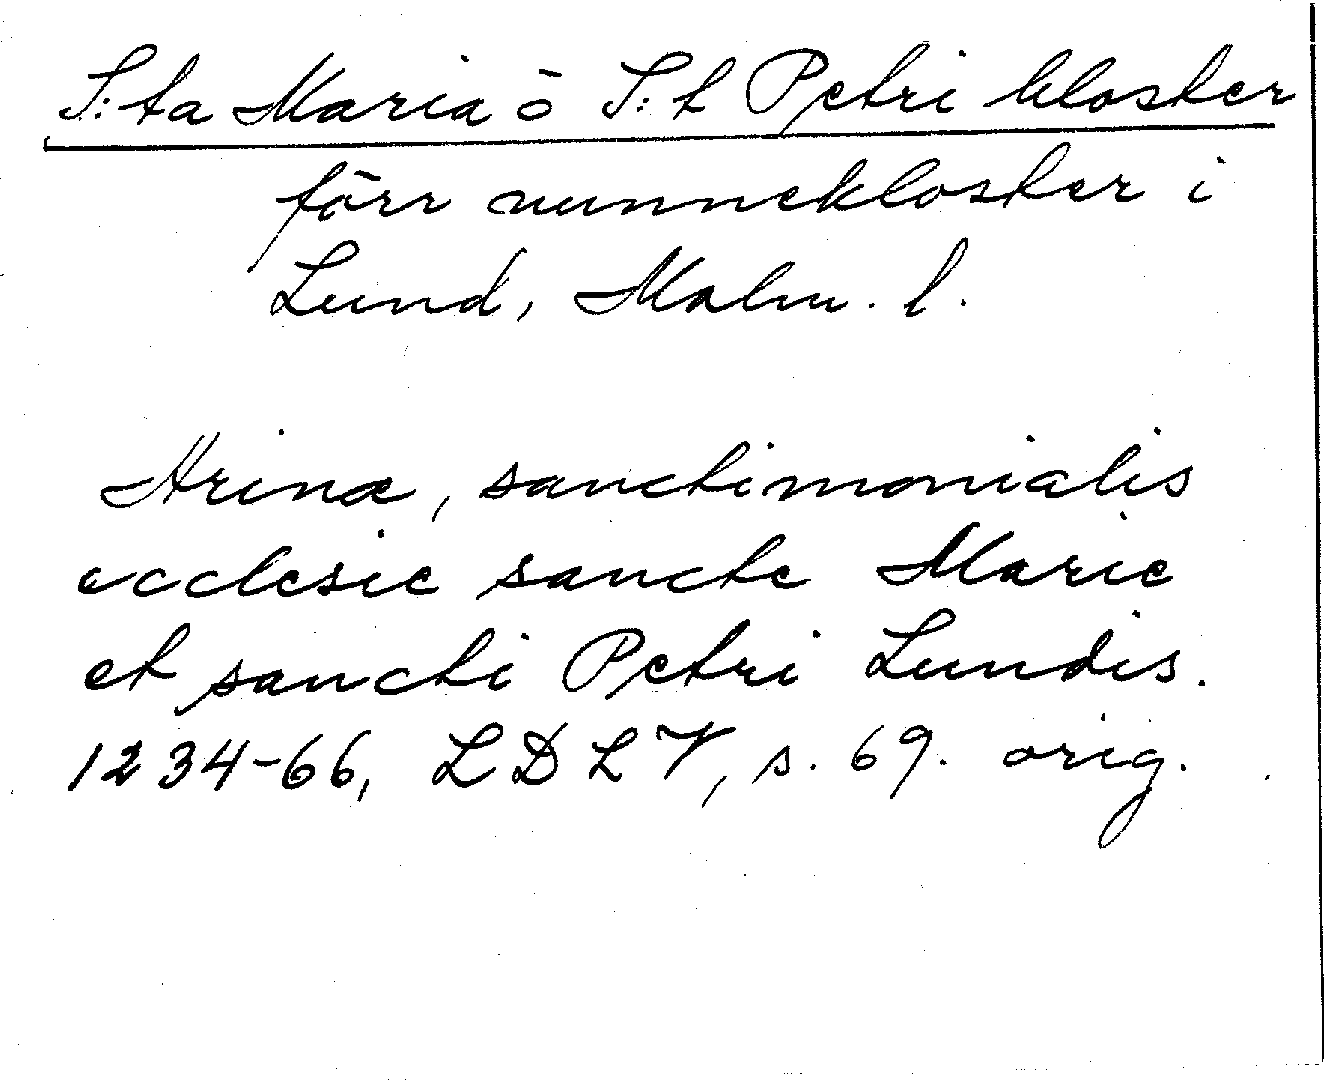 S:ta Maria o S:t Petri kloster
förr nunnekloster i
Lund, Malm. l.
Arinæ, sanctimonialis
ecclesie sancte Marie
et sancti Petri Lundis.
1234-66, LDLV, s. 69. orig.